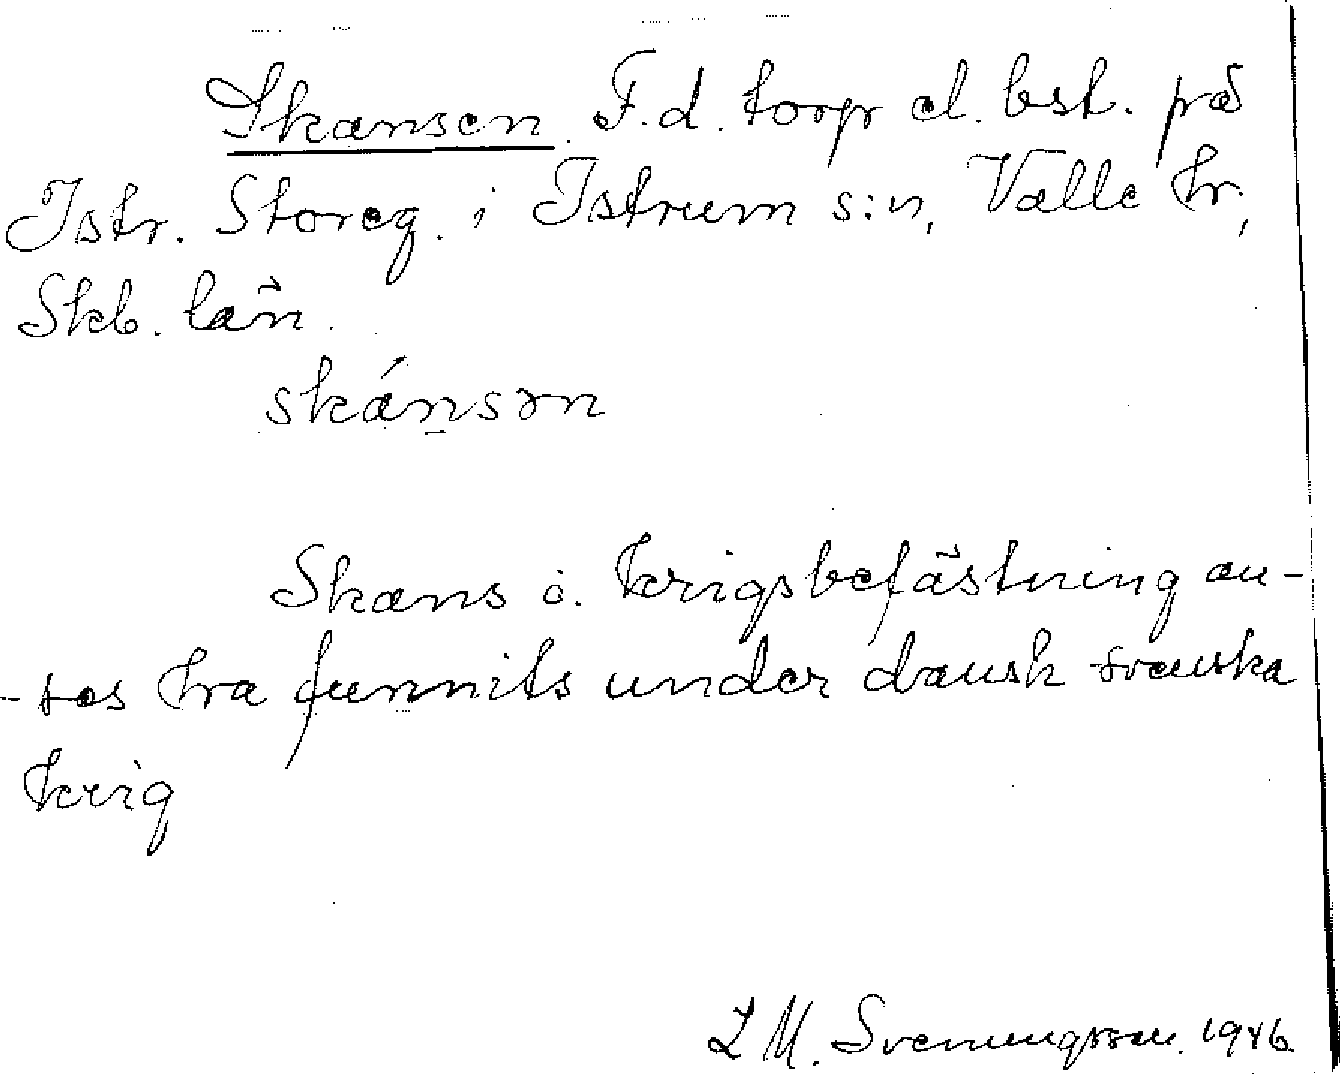 Skansen. F.d. torp el. bst. på
Istr. Storeg. i Istrum s:n, Valle hr,
Skb. län.
skánsən
Skans o. krigsbefästning an-
-tas ha funnits under dansk svenska
krig
L M. Svenungsson. 1946